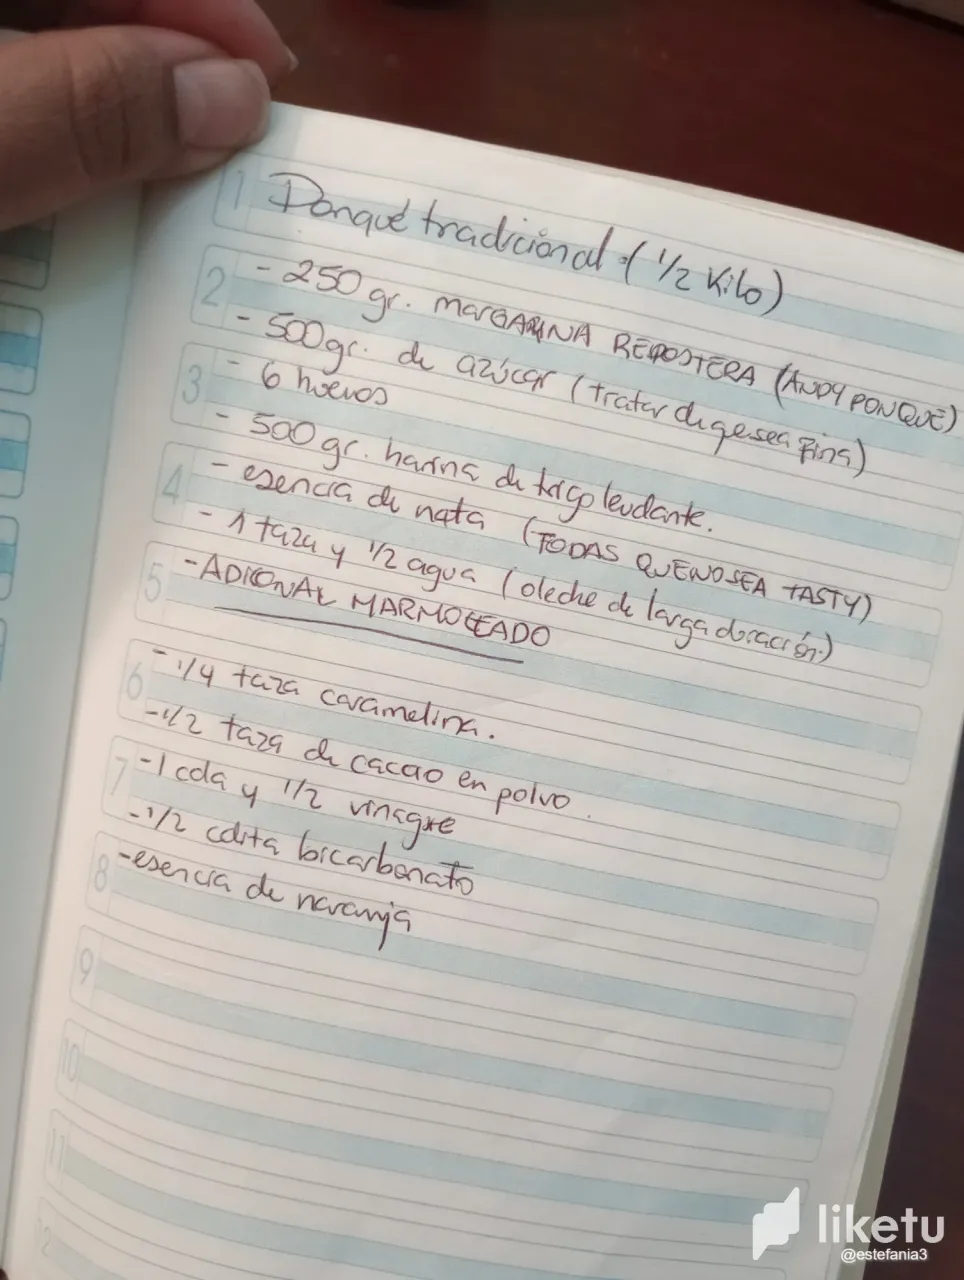 1 Ponqué tradicional. (1/2 Kilo)
2 - 250 gr. MARGARINA REPOSTERA (ANDY PONQUE)
- 500 gr. de azúcar (tratar de que sea fina)
3 - 6 huevos
- 500 gr. harina de trigo leudante.
4 - esencia de nata (TODAS QUE NO SEA TASTY)
- 1 taza y 1/2 agua (o leche de larga duración.)
5 - ADICONAL MARMOLEADO
6 - 1/4 taza caramelina.
- 1/2 taza de cacao en polvo.
7 - 1 cda y 1/2 vinagre
- 1/2 cdita bicarbonato
8 - esencia de naranja
9
10
11
12
liketu
@estefania3